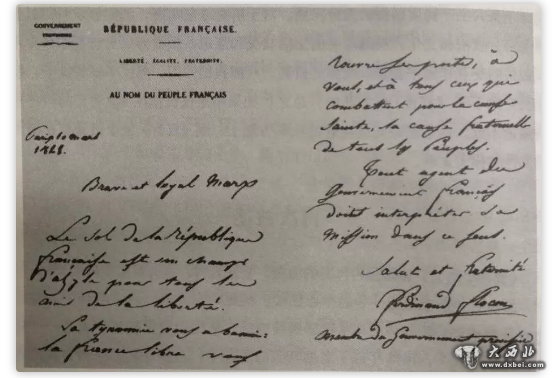 GOUVERNEMENT
PROVISOIRE
RÉPUBLIQUE FRANÇAISE.
LIBERTÉ, ÉGALITÉ, FRATERNITÉ.
AU NOM DU PEUPLE FRANÇAIS
mars
1848.
Brave et loyal Marx
Le sol de la république
française est un champ
d'asyle pour tous les
amis de la liberté.
La tyrannie vous a banni:
la france libre vous
rouvre ses portes, à
vous, et à tous ceux qui
combattent pour la cause
Sainte, la cause fraternelle
de tous les Peuples.
Tout agent du
Gouvernement français
doit interpréter sa
mission dans ce sens.
Salut et fraternité
Ferdinand Flocon
membre du Gouvernement provisoire
大西北
www.dxbei.com